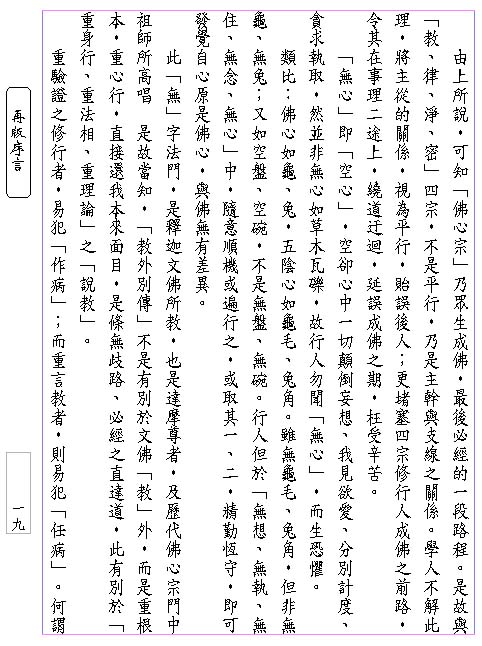 由上所說，可知「佛心宗」乃眾生成佛，最後必經的一段路程。是故與
「教、律、淨、密」四宗，不是平行，乃是主幹與支線之關係。學人不解此
理，將主從的關係，視為平行，貽誤後人；更堵塞四宗修行人成佛之前路，
令其在事理二途上，繞道迂迴，延誤成佛之期，枉受辛苦。
「無心」即「空心」，空卻心中一切顛倒妄想、我見欲愛、分別計度、
貪求執取，然並非無心如草木瓦礫，故行人勿聞「無心」，而生恐懼。
類比：佛心如龜、兔，五陰心如龜毛、兔角。雖無龜毛、兔角，但非無
龜、無兔；又如空盤、空碗，不是無盤、無碗。行人但於「無想、無執、無
住、無念、無心」中，隨意順機或遍行之，或取其一、二，精勤恆守，即可
發覺自心原是佛心，與佛無有差異。
此「無」字法門，是釋迦文佛所教，也是達摩尊者，及歷代佛心宗門中
祖師所高唱　是故當知，「教外別傳」不是有別於文佛「教」外，而是重根
本，重心行，直接還我本來面目，是條無歧路、必經之直達道，此有別於「
重身行、重法相、重理論」之「說教」。
重驗證之修行者，易犯「作病」；而重言教者，則易犯「任病」。何謂
再版序言
一九